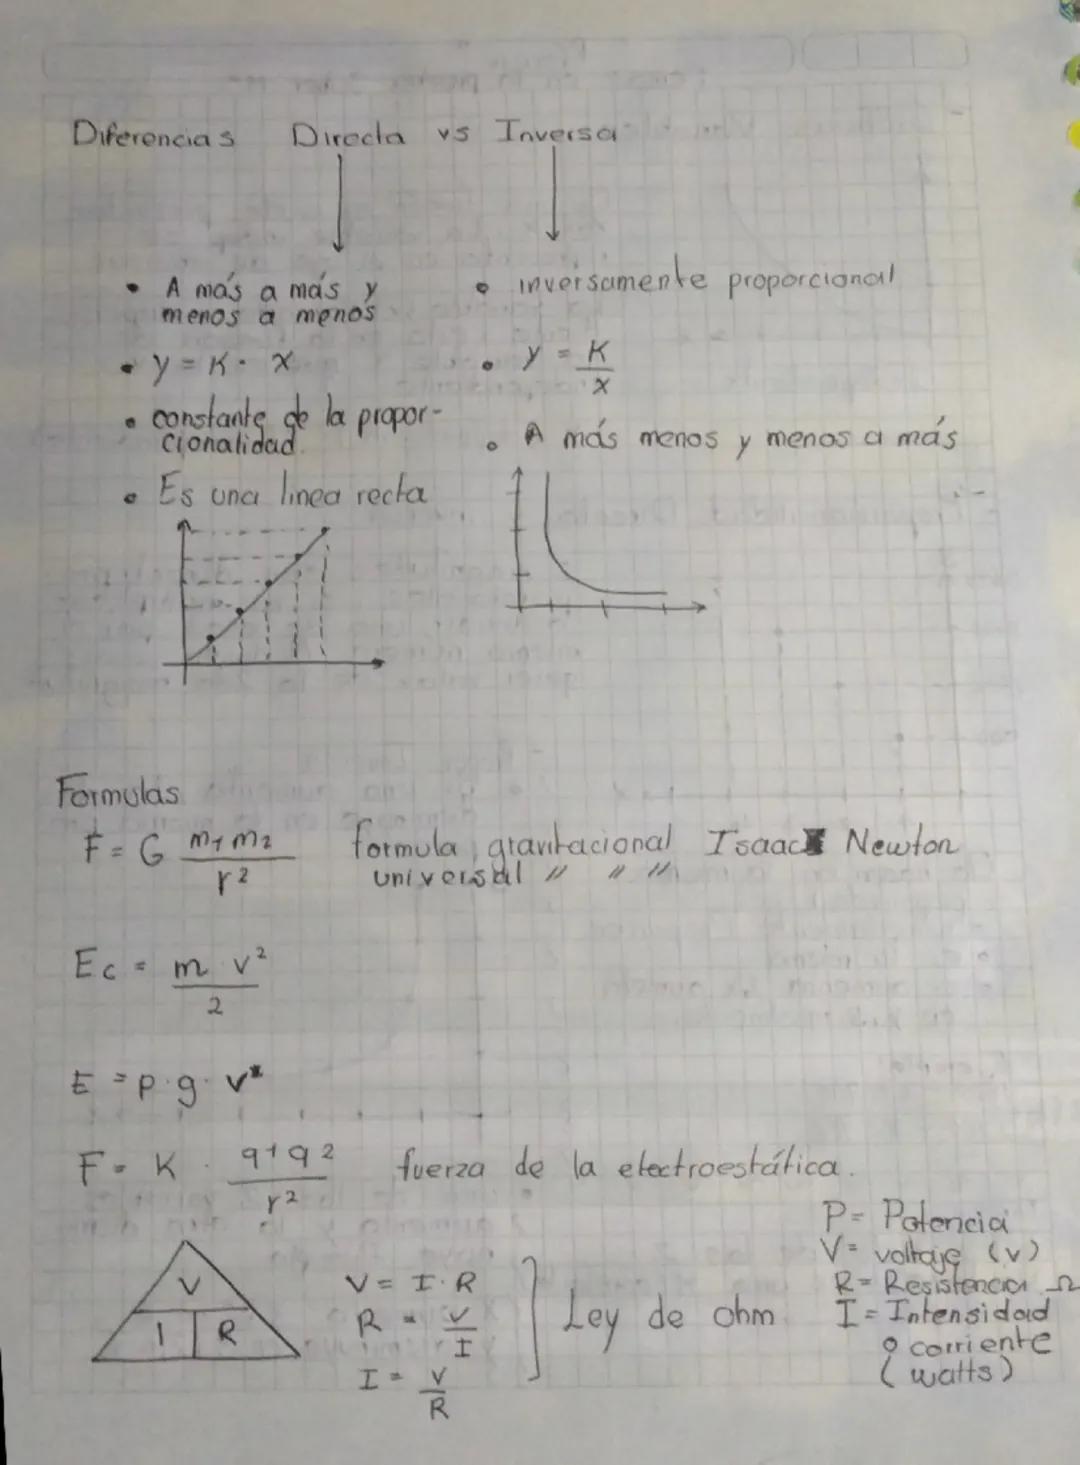 Diferencias Directa vs Inversa
• A más a más y
menos a menos
• y = K · x
• constante de la propor-
cionalidad.
• Es una linea recta
• inversamente proporcional
• y = K
x
• A más menos y menos a más
Formulas
F = G m1 m2
r²
formula gravitacional Isaac Newton
universal " " "
Ec = m v²
2
E = p · g · v
F = K · q1 q2
r²
fuerza de la electroestática.
V
I R
V = I · R
R = V
I
I = V
R
Ley de ohm
P = Potencia
V = voltaje (v)
R = Resistencia Ω
I = Intensidad
o corriente
(watts)